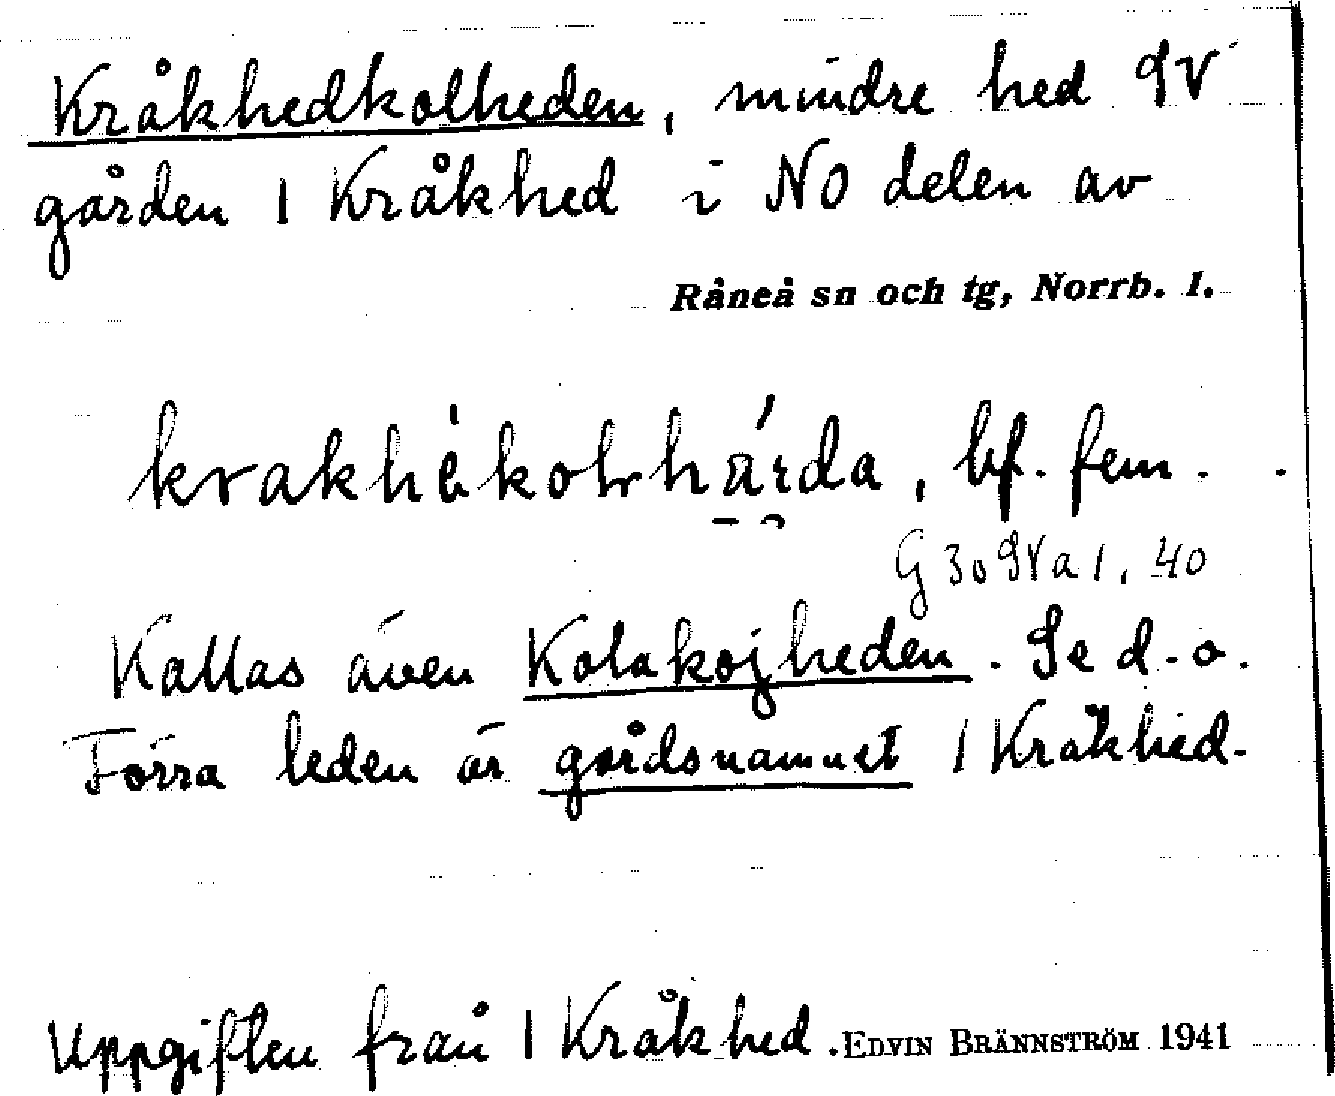 Kråkhedkolheden, mindre hed SV
gården 1 Kråkhed i NO delen av
Råneå sn och tg, Norrb. l.
krakhèkolrhárda, bf. fem.
G 30 SV a 1, 40
Kallas även Kolakojheden. Se d.o.
Förra leden är gårdsnamnet 1 Kråkhed.
Uppgiften från 1 Kråkhed. EDVIN BRÄNNSTRÖM 1941